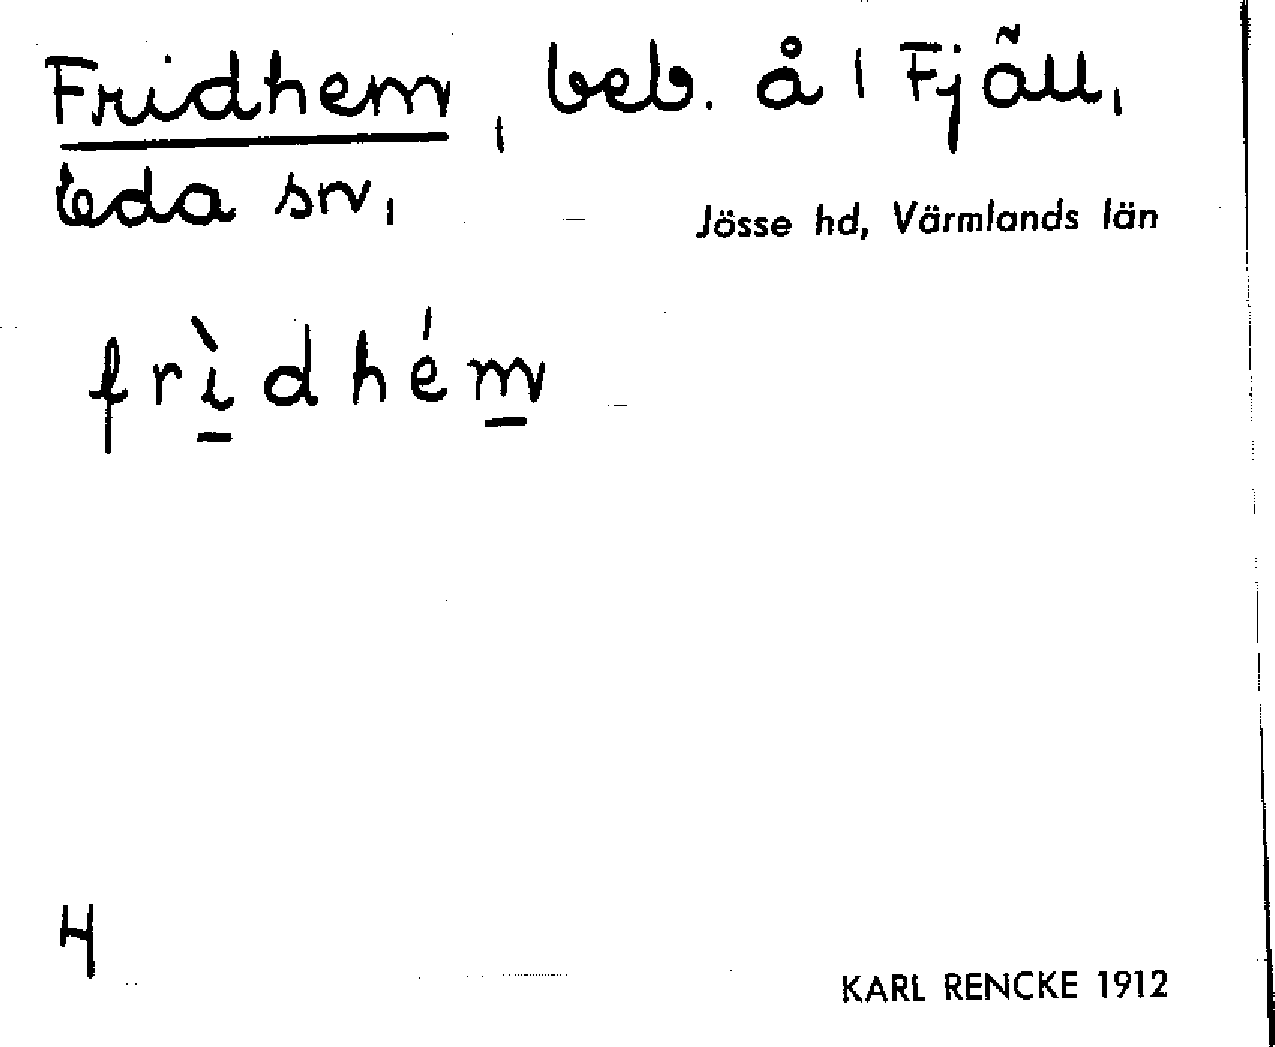 Fridhem, beb. å 1 Fjäll,
Eda sn,
Jösse hd, Värmlands län
frìdhém
4
KARL RENCKE 1912